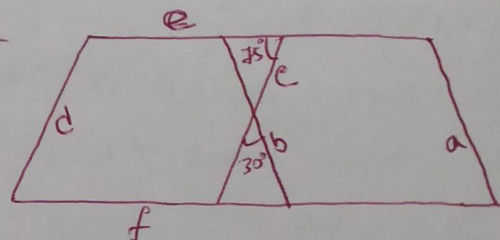 e
75°
c
d
b
a
30°
f